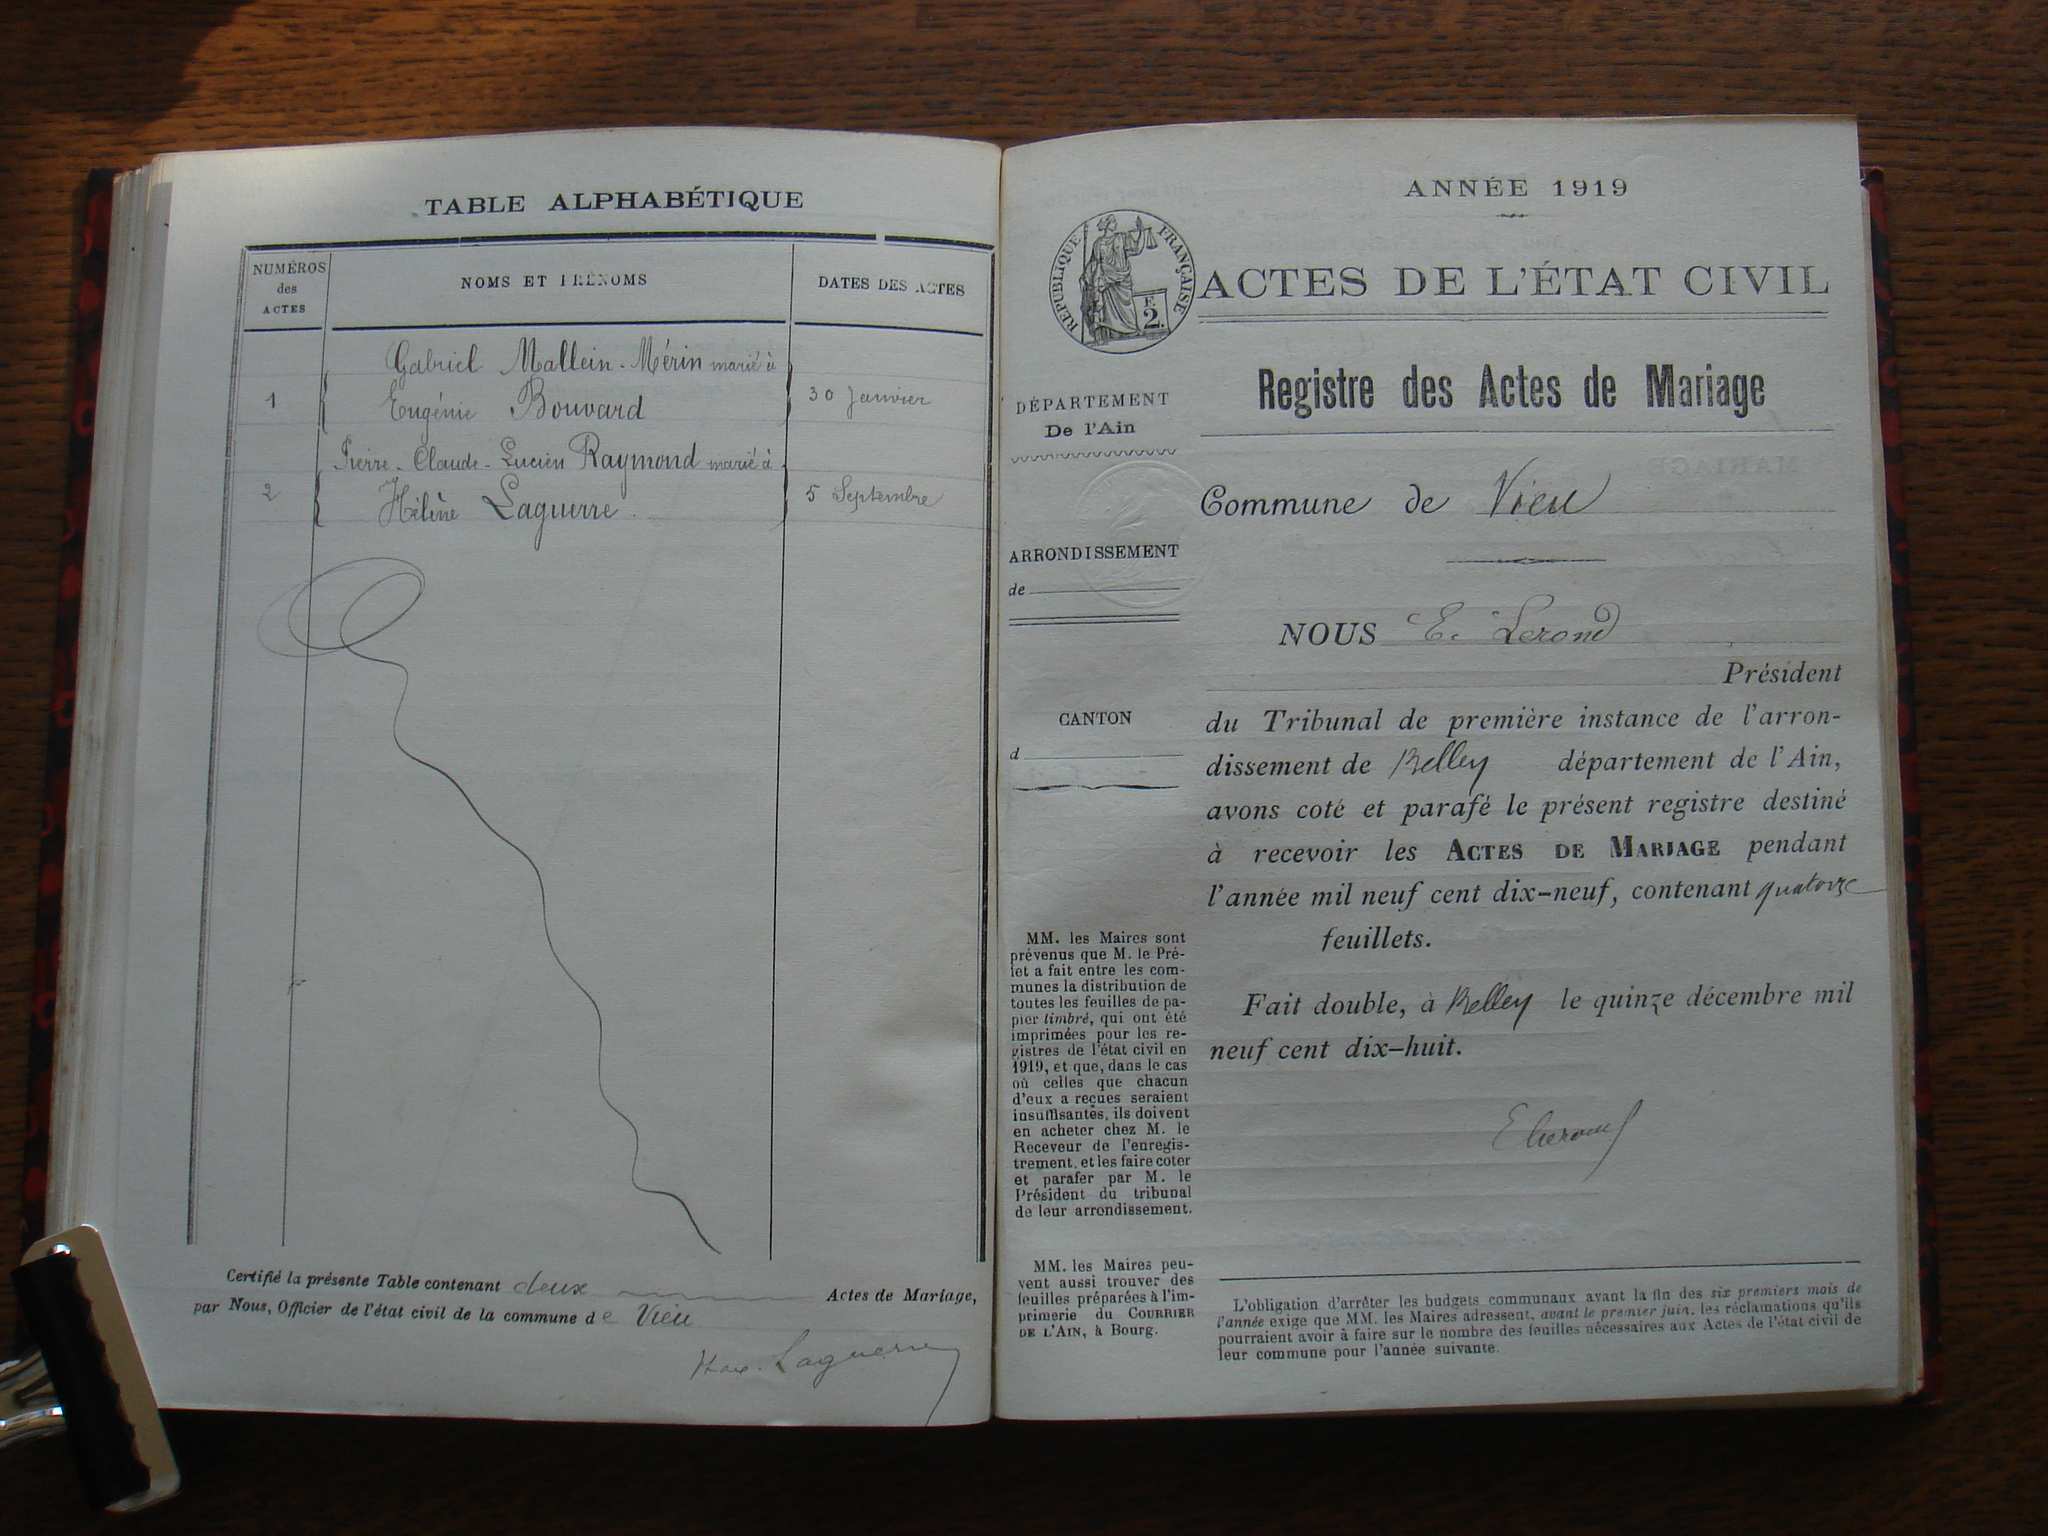 TABLE ALPHABÉTIQUE
NUMÉROS
des
ACTES
NOMS ET PRÉNOMS
DATES DES ACTES
Gabriel Mallein-Mérin marié à
1
Eugénie Bouvard
30 Janvier
Pierre-Claude-Lucien Raymond marié à
2
Hélène Laguerre.
5 Septembre
Certifié la présente Table contenant deux Actes de Mariage,
par Nous, Officier de l'état civil de la commune de Vieu
Laguerre
ANNÉE 1919
RÉPUBLIQUE FRANÇAISE
E.
2.
ACTES DE L'ÉTAT CIVIL
Registre des Actes de Mariage
DÉPARTEMENT
De l'Ain
Commune de Vieu
ARRONDISSEMENT
de
CANTON
d
NOUS E. Lerond
Président
du Tribunal de première instance de l'arron-
dissement de Belley département de l'Ain,
avons coté et parafé le présent registre destiné
à recevoir les ACTES DE MARIAGE pendant
l'année mil neuf cent dix-neuf, contenant quatorze
feuillets.
Fait double, à Belley le quinze décembre mil
neuf cent dix-huit.
MM. les Maires sont
prévenus que M. le Pré-
fet a fait entre les com-
munes la distribution de
toutes les feuilles de pa-
pier timbré, qui ont été
imprimées pour les re-
gistres de l'état civil en
1919, et que, dans le cas
où celles que chacun
d'eux a reçues seraient
insuffisantes, ils doivent
en acheter chez M. le
Receveur de l'enregis-
trement, et les faire coter
et parafer par M. le
Président du tribunal
de leur arrondissement.
MM. les Maires peu-
vent aussi trouver des
feuilles préparées à l'im-
primerie du COURRIER
DE L'AIN, à Bourg.
L'obligation d'arrêter les budgets communaux avant la fin des six premiers mois de
l'année exige que MM. les Maires adressent, avant le premier juin, les réclamations qu'ils
pourraient avoir à faire sur le nombre des feuilles nécessaires aux Actes de l'état civil de
leur commune pour l'année suivante.